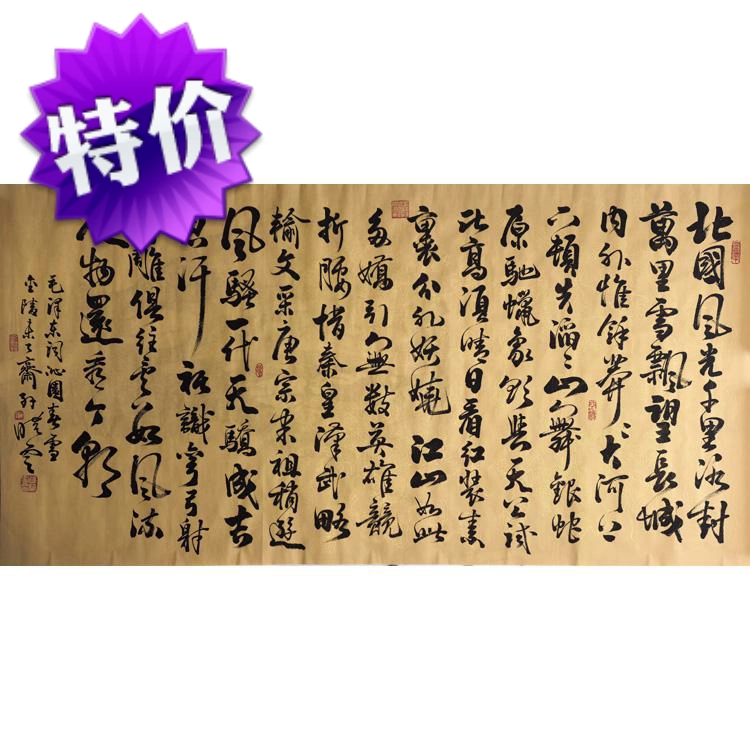 特价
北國風光千里冰封
萬里雪飄望長城
内外惟餘莽〻大河上
下頓失滔〻山舞銀蛇
原馳蠟象欲與天公試
比高須晴日看紅裝素
裹分外妖嬈江山如此
多嬌引無數英雄競
折腰惜秦皇漢武略
輸文采唐宗宋祖稍遜
風騷一代天驕成吉
思汗祇識彎弓射
雕俱往矣數風流
人物還看今朝
毛澤東詞沁園春雪
金陵